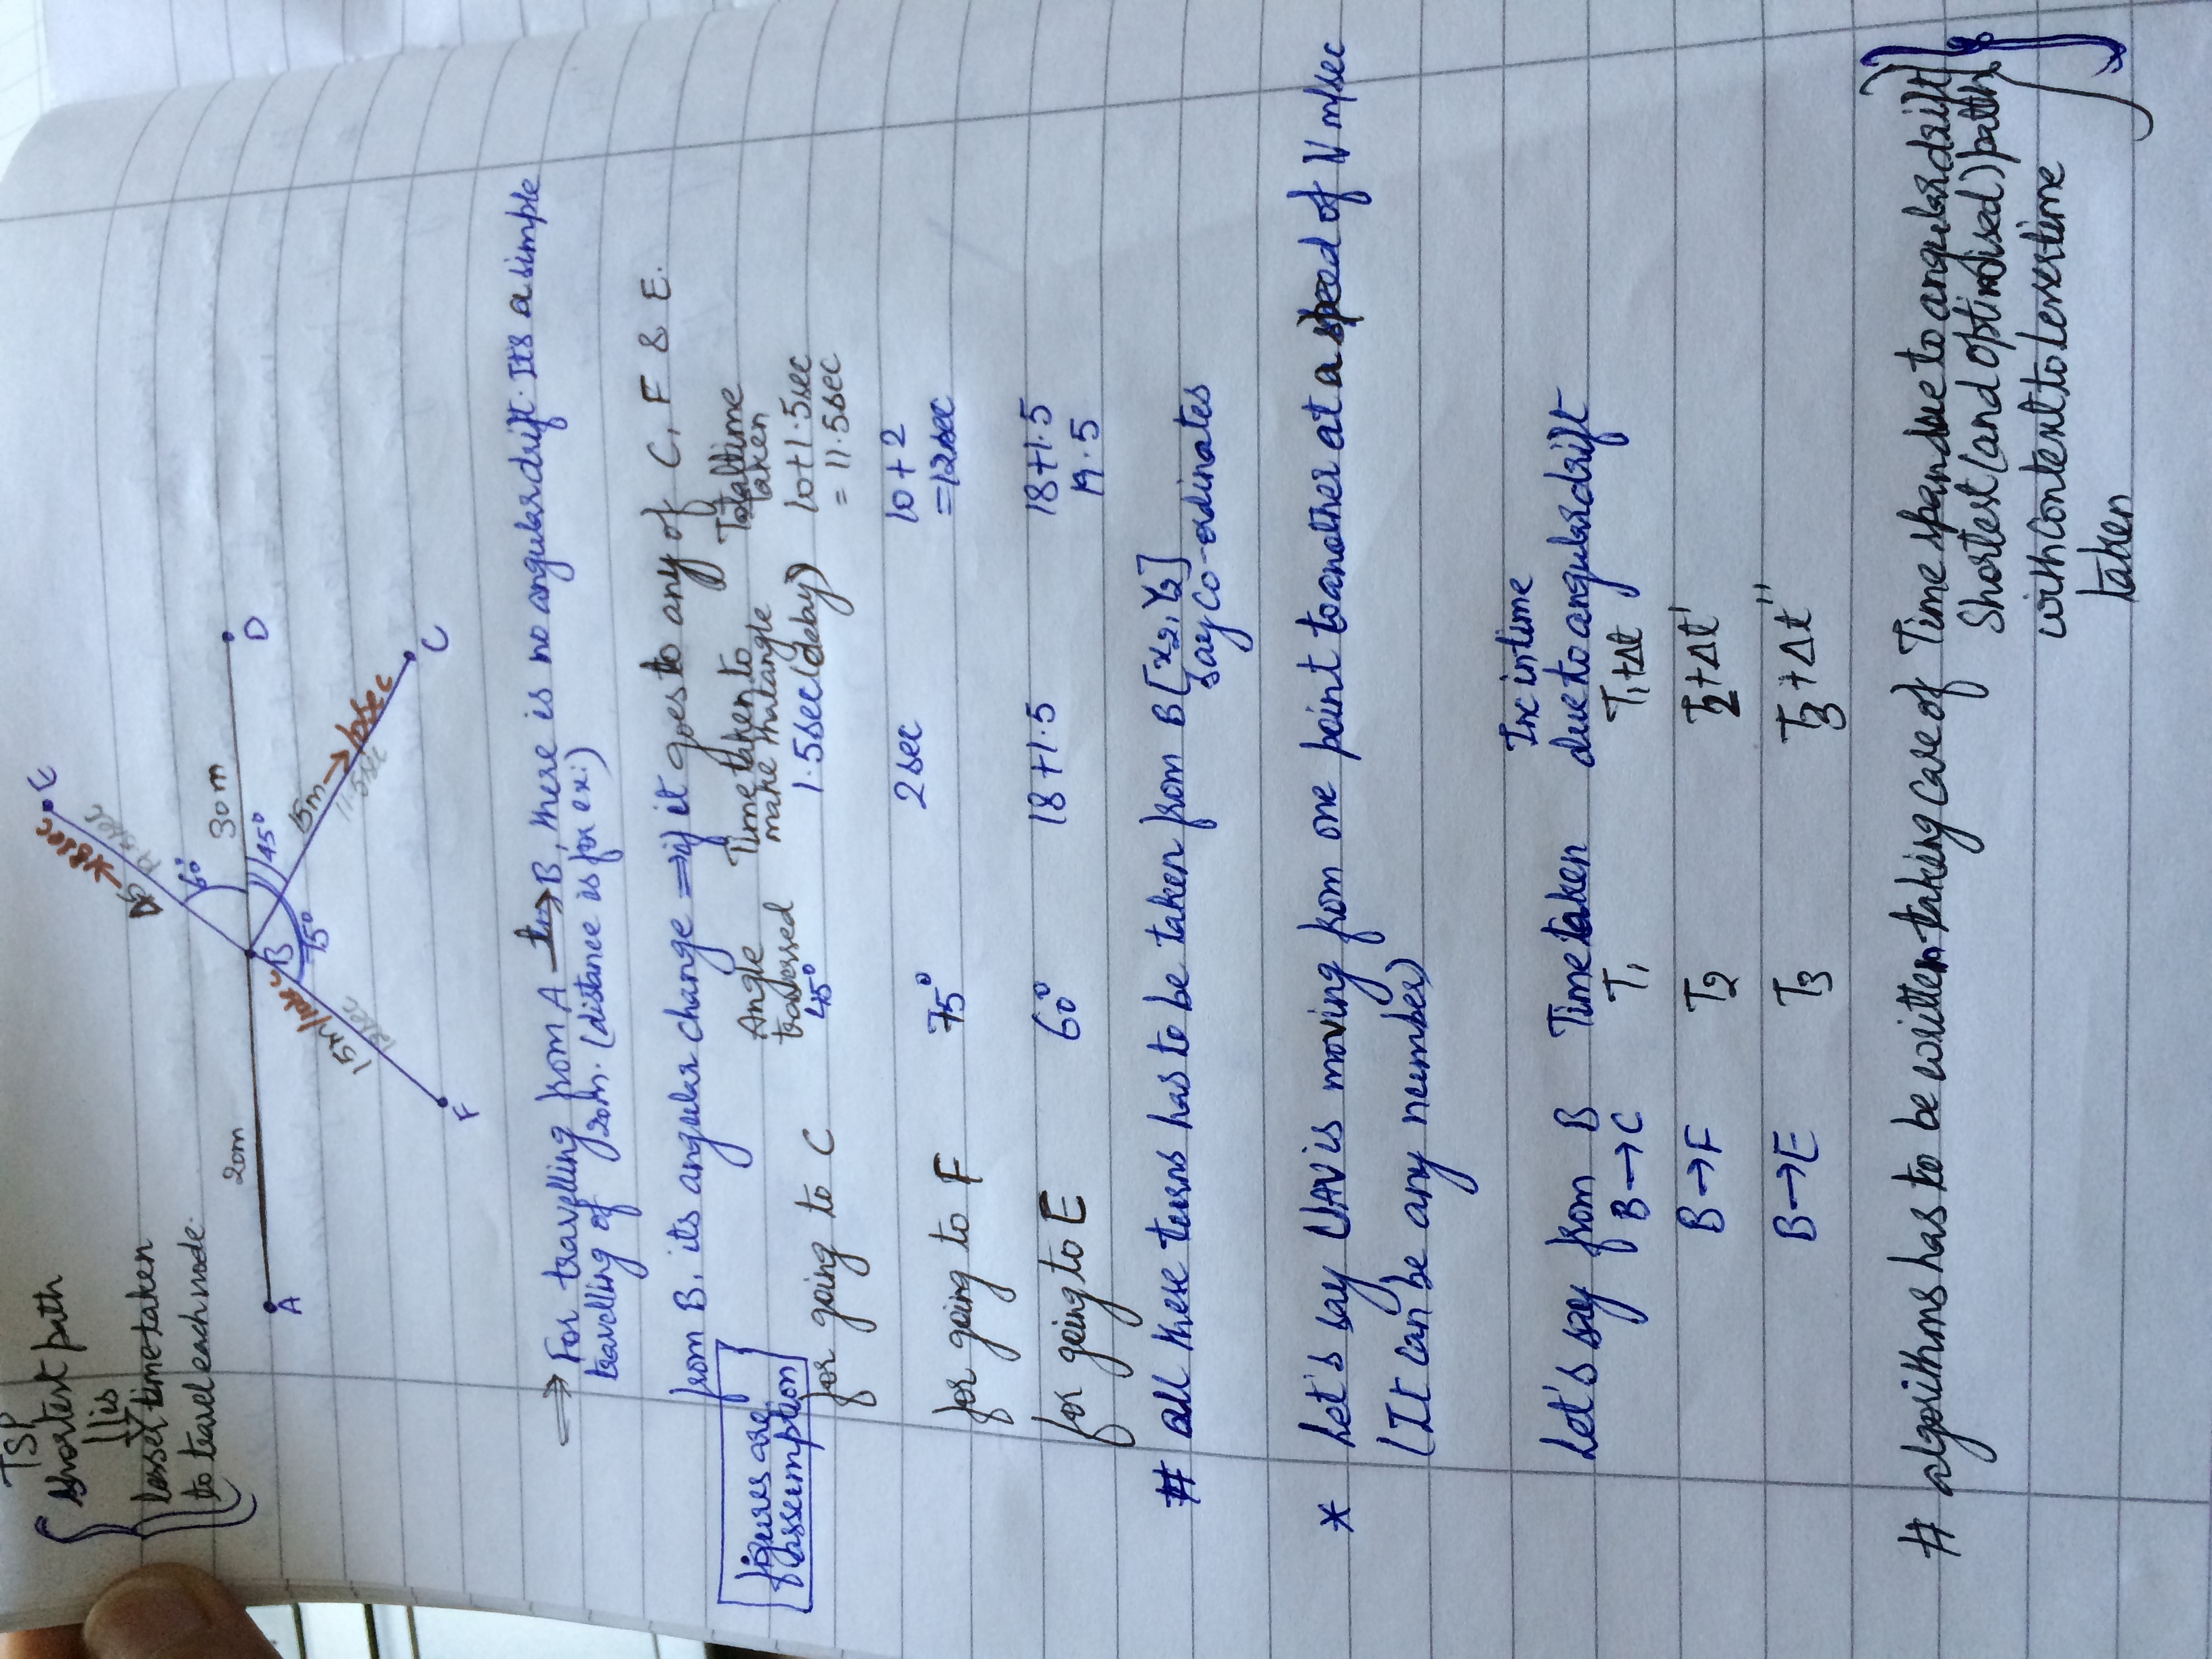 TSP
shortest path
is
lesser time taken
to travel each node.
E
45 → 18sec
19.5sec
60°
20m
30m
A
B
D
45°
75°
15m/10sec
12sec
15m → 10sec
11.5sec
F
C
⇒ For travelling from A to→ B, there is no angular drift. It's a simple
travelling of 20m. (distance is for ex:)
from B, its angular change ⇒ if it goes to any of C, F & E.
figures are
assumption
Angle
traversed
Time taken to
make that angle
Total time
taken
for going to C 45° 1.5sec (delay) 10+1.5sec
= 11.5sec
for going to F 75° 2sec 10+2
=12sec
for going to E 60° 18+1.5 18+1.5
19.5
# all these turns has to be taken from B [x2, Y2]
say Co-ordinates
* Let's say UAV is moving from one point to another at a speed of V m/sec
(It can be any number)
Inc in time
Let's say from B Time taken due to angular drift
B→C T1 T1+Δt
B→F T2 T2+Δt'
B→E T3 T3+Δt''
# algorithms has to be written taking care of Time span due to angular drift
Shortest (and optimised) path
with context to lesser time
taken